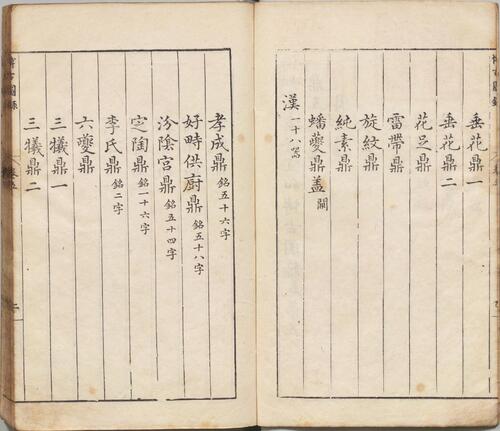 垂花鼎一
垂花鼎二
花足鼎
雷帶鼎
旋紋鼎
純素鼎
蟠夔鼎蓋闕
漢一十八器
孝成鼎銘五十六字
好畤供厨鼎銘五十八字
汾陰宮鼎銘五十四字
定陶鼎銘一十六字
李氏鼎銘二字
六夔鼎
三犧鼎一
三犧鼎二